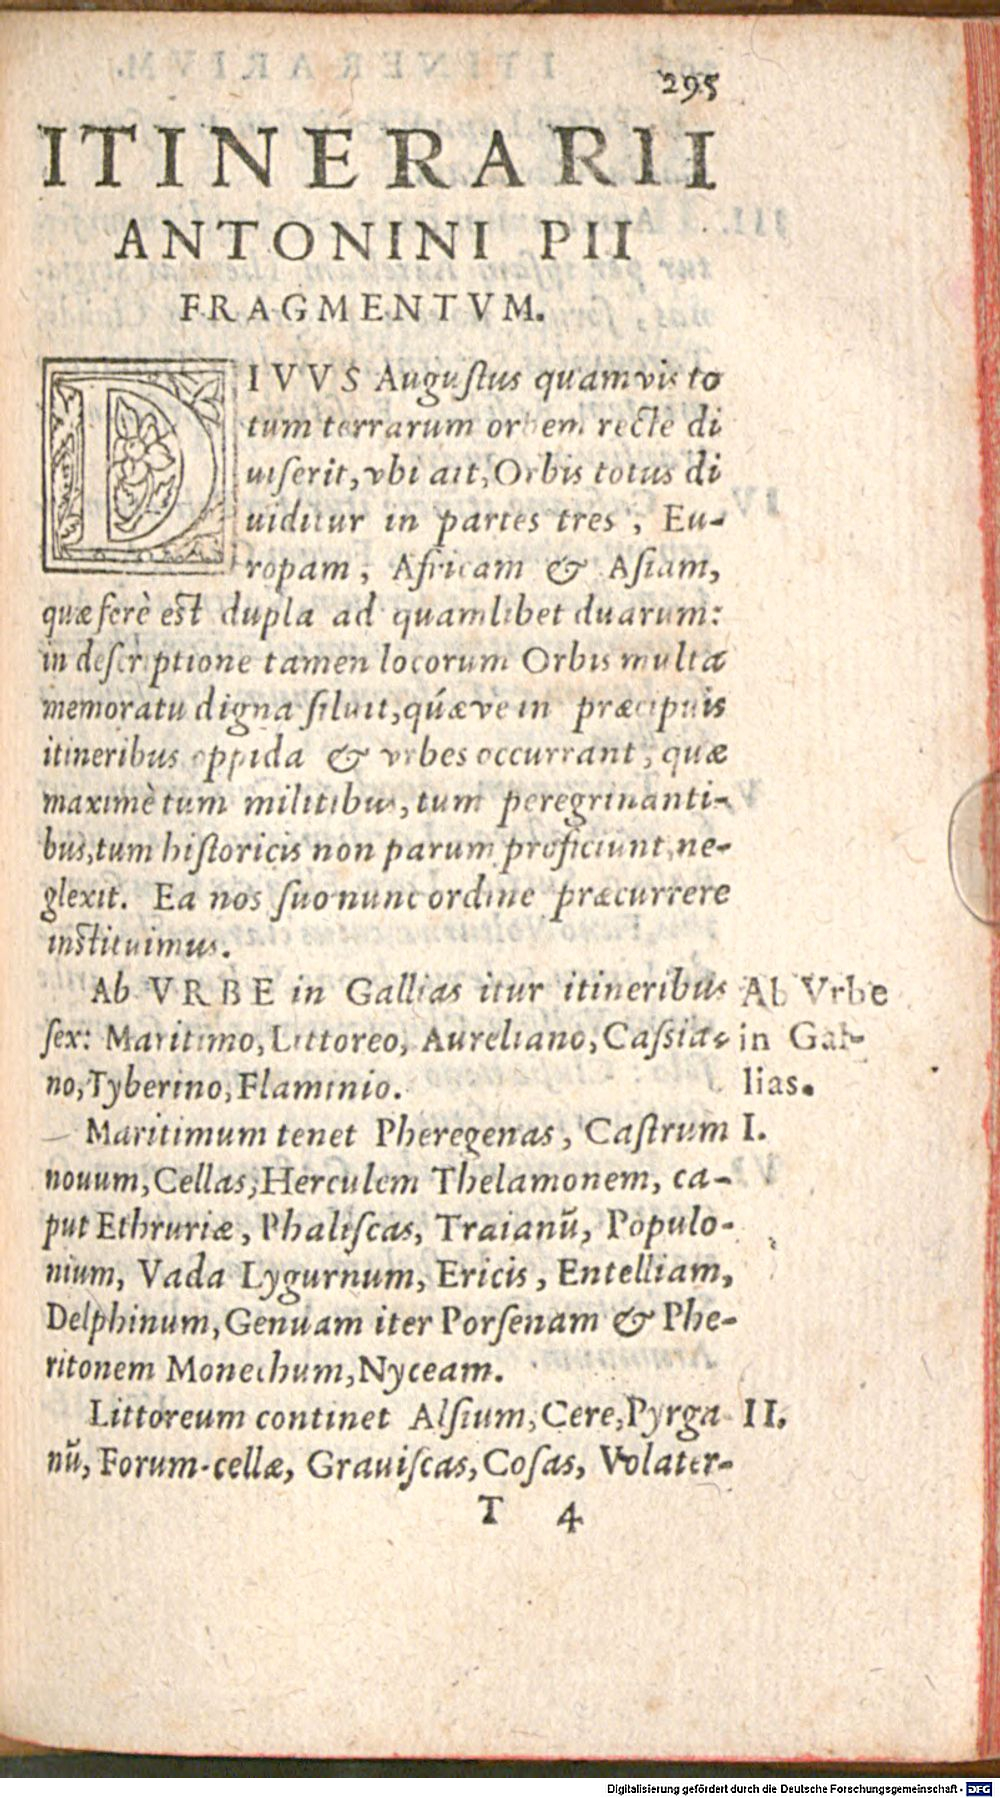 295
ITINERARII
ANTONINI PII
FRAGMENTVM.
DIVVS Augustus quamvis to
tum terrarum orbem recte di
uiserit, vbi ait, Orbis totus di
uiditur in partes tres, Eu-
ropam, Africam & Asiam,
quæ ferè est dupla ad quamlibet duarum:
in descriptione tamen locorum Orbis multa
memoratu digna siluit, quǽve in præcipuis
itineribus oppida & vrbes occurrant, quæ
maximè tum militibus, tum peregrinanti-
bus, tum historicis non parum proficiunt, ne-
glexit. Ea nos suo nunc ordine præcurrere
instituimus.
Ab VRBE in Gallias itur itineribus Ab Vrbe
sex: Maritimo, Littoreo, Aureliano, Cassia- in Gal-
no, Tyberino, Flaminio. lias.
Maritimum tenet Pheregenas, Castrum I.
nouum, Cellas, Herculem Thelamonem, ca-
put Ethruriæ, Phaliscas, Traianũ, Populo-
nium, Vada Lygurnum, Ericis, Entelliam,
Delphinum, Genuam iter Porsenam & Phe-
ritonem Monechum, Nyceam.
Littoreum continet Alsium, Cere, Pyrga II.
nũ, Forum-cellæ, Grauiscas, Cosas, Volater-
T 4
Digitalisierung gefördert durch die Deutsche Forschungsgemeinschaft - DFG